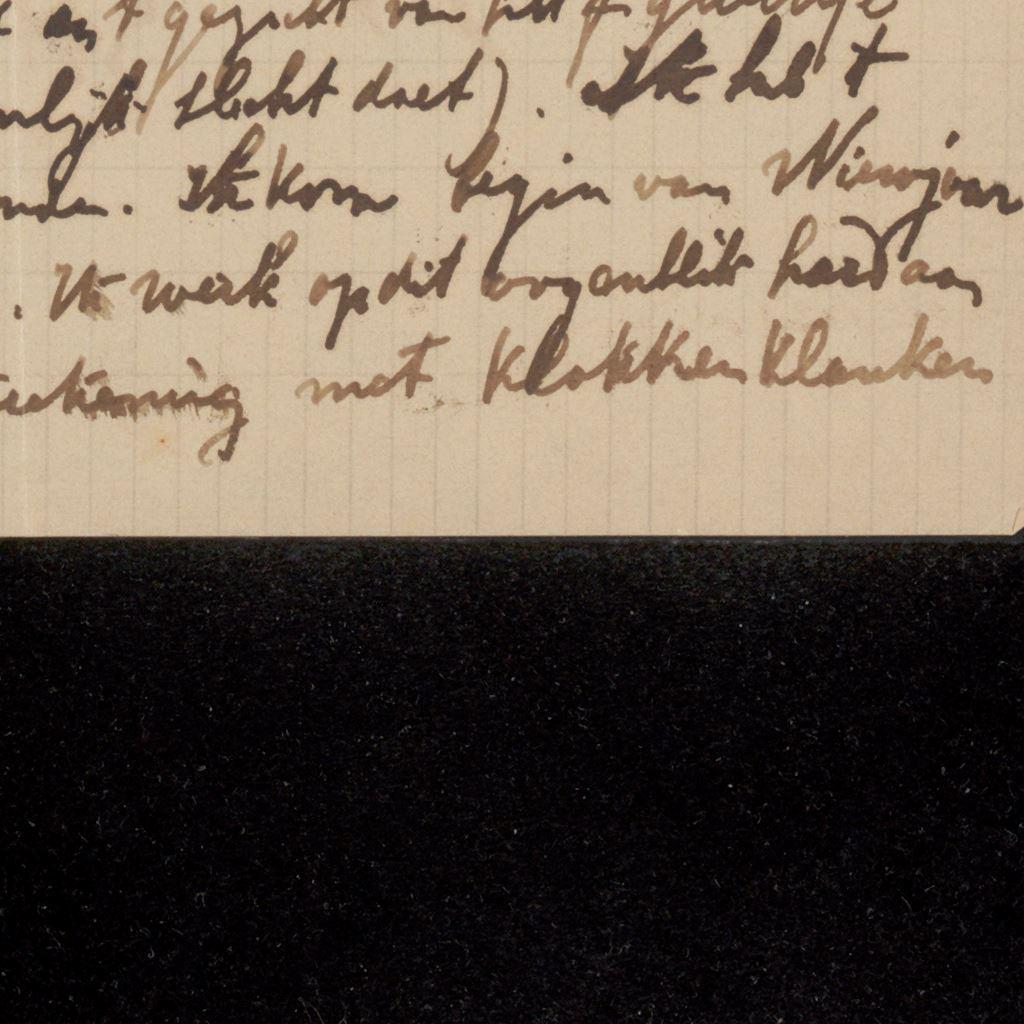 en 't gezicht van het
slecht doet). Ik heb 't
Ik kom begin van Nieuwjaar
. Ik werk op dit oogenblik hard aan
teekening met Klokken Klanken